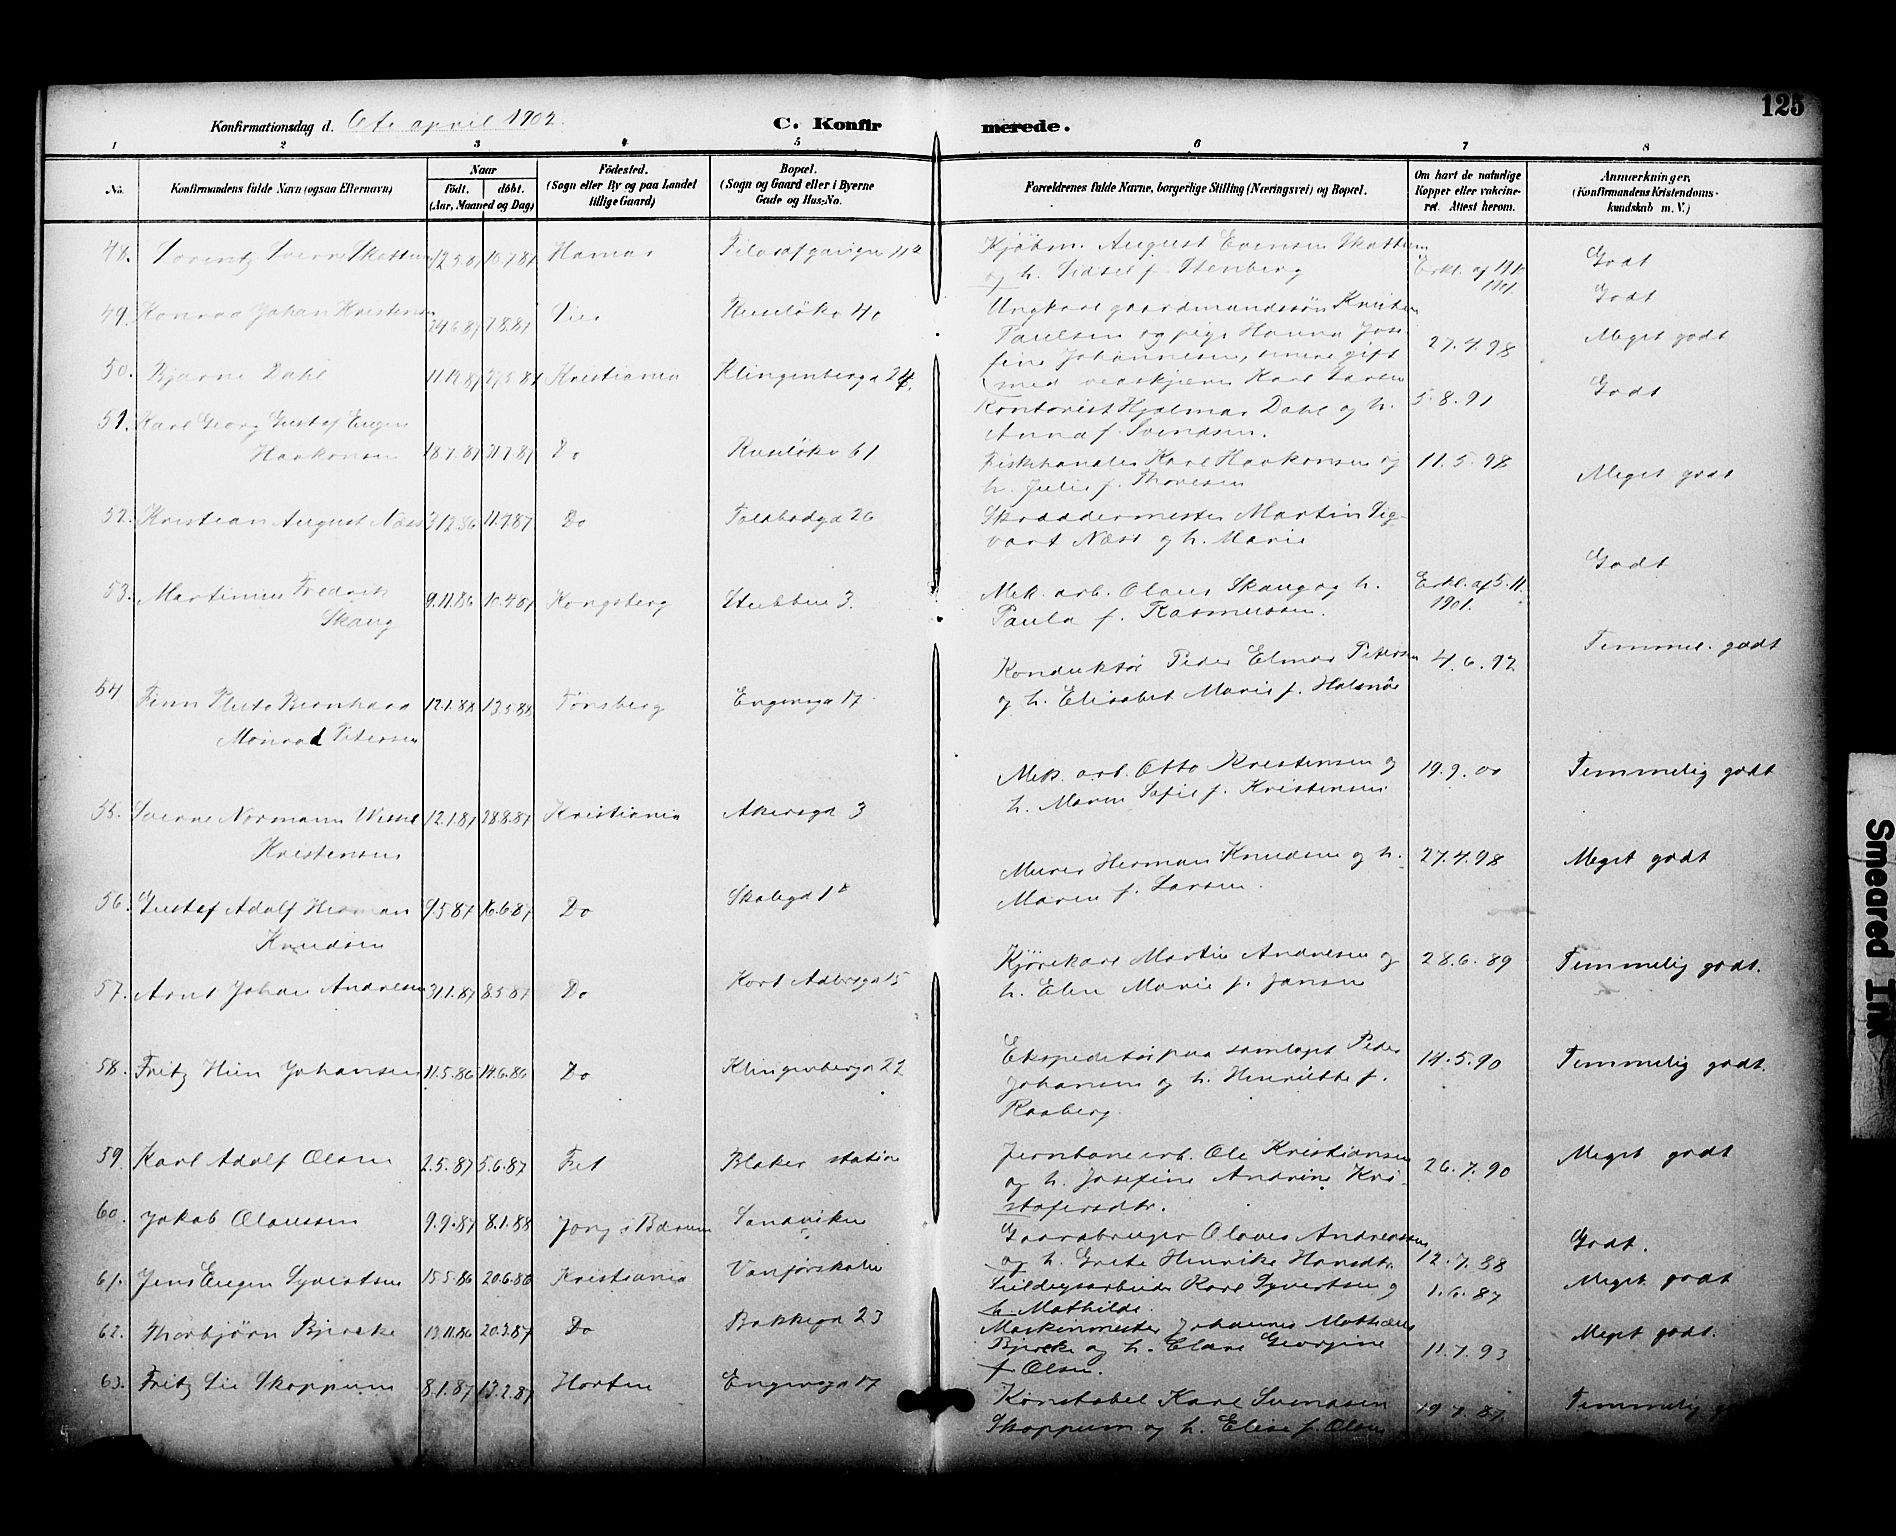 125
Konfirmationsdag d. 6te april 1902.
C. Konfirmerede.
1 2 3 4 5 6 7 8
No.
Konfirmandens fulde Navn (ogsaa Efternavn)
Naar
födt. döbt.
(Aar, Maaned og Dag)
Födested.
(Sogn eller By og paa Landet
tillige Gaard)
Bopæl.
(Sogn og Gaard eller i Byerne
Gade og Hus-No.
Forældrenes fulde Navne, borgerlige Stilling (Næringsvei) og Bopæl.
Om havt de naturlige
Kopper eller vakcine-
ret. Attest herom.
Anmærkninger,
(Konfirmandens Kristendoms-
kundskab m. V.)
48. Lorentz Sverre Skattum Hamar
Kjöbm. August Evensen Skattum
og h. Sidsel f. Stenberg
Erkl. af
1901.
Godt
49. Konrad Johan Kristensen 24.6.87 7.8.87 Ruselökv 40
Ungkarl gaardmandssön Kristen
Paulsen og pige Hanna Jose-
fine Johannesen, senere gift
med vedskjærer Karl Larsen
27.4.98
Godt
Meget godt
50. Bjarne Dahl Kristiania Klingenbergd 24.
Kontorist Hjalmar Dahl og h.
Anna f. Svendsen.
5.8.91
Godt
51. Karl Georg Gustaf Eugen
Haakonsen 18.7.87 31.7.87 Do Ruselökv 61
Fiskehandler Karl Haakonsen og
h. Julie f. Thoresen
11.5.98
Meget godt
52. Kristian August Næss 3.12.86 11.9.87 Do Toldbodgd 26
Skræddermester Martin Sig-
vart Næss og h. Marie
53. Martinius Fredrik
Skaug 9.11.86 10.4.87 Kongsberg Stubben 3.
Mek. arb. Olaus Skaug og h.
Paula f. Rasmussen.
Erkl. af 5.11.
1901.
Godt
54 Finn Bernhard
Monrad Petersen 12.1.88 13.5.88 Tönsberg Engensgd 17
Konduktör Peder Elmar Petersen
og h. Elisabet Marie f. Halsnös
4.6.92
Temmel. godt
55. Sverre Normann Wessel
Kristensen 12.1.87 28.8.87 Kristiania Akersgd 3
Mek. arb. Otto Kristensen og
h. Maren Sofie f. Kristensen
19.9.00
Temmelig godt
56. Gustaf Adolf Herman
Knudsen 9.5.87 16.6.87 Do
Murer Herman Knudsen og h.
Maren f. Larsen.
27.4.98
Meget godt
57. Arnt Johan Andresen 31.1.87 8.5.87 Do Kort Adlersgd 15
Kjörekarl Martin Andresen og
h. Elen Marie f. Jansen
28.6.89
Temmelig godt.
58. Fritz Johansen 11.5.86 14.6.86 Do Klingenbergd 22
Ekspeditör paa samlaget Peder
Johansen og h. Henriette f.
Raaberg.
14.5.90
Temmelig godt.
59. Karl Adolf Olsen 2.5.87 5.6.87 Fet Blaker station
Jernbanearb. Ole Kristiansen
og h. Josefine Andrine Kri-
stofersdtr.
26.7.90
Meget godt
60. Jakob Olaussen 9.9.87 8.1.88 Jong i Bærum Sandviken
Gaardbruger Olaves Andreassen
og h. Grete Henrike Hansdtr.
12.7.88
Godt.
61. Jens Eugen Syvertsen 15.5.86 20.6.86 Kristiania
Karl Syvertsen og
h. Mathilde.
1.6.87
Meget godt
62. Thorbjörn Bjercke 13.11.86 20.3.87 Do Bakkegd 23
Maskinmester Johannes
Bjercke og h. Clara Georgine
f. Olsen.
11.7.93
Meget godt.
63. Fritz Lie Skoppum 8.1.87 13.2.87 Horten Engensgd 17
Konstabel Karl Svendsen
Skoppum og h. Elise f. Olsen
19.7.87
Temmelig
Smeared Ink